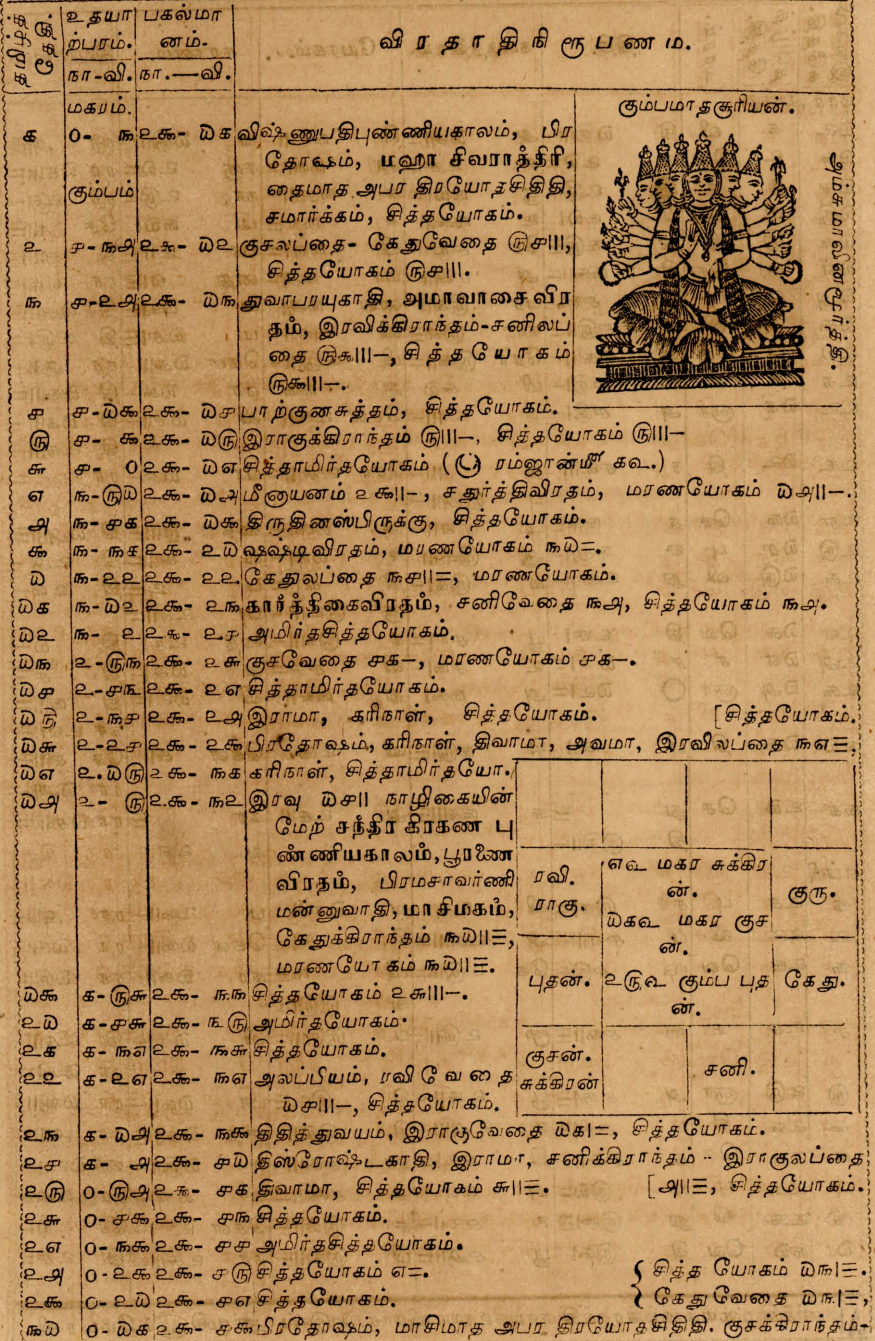 உதயா பகல்மா
ற்பரம். னம்.
விரதாதிநிரூபணம்.
நா-வி. நா.—வி.
மகரம்.
கும்பமாதசூரியன்.
க 0- ௩ ௨௯- ௰க விஷ்ணுபதிபுண்ணியகாலம், பிர
தோஷம், மஹா சிவராத்திரி,
கும்பம் தைமாத அபர திரயோதசிதிதி,
சமார்க்கம், சித்தயோகம்.
௨ ௪-௩௮ ௨௯- ௰௨ குசலப்தை- கேதுவேதை ௫௪|||,
சித்தயோகம் ௫௪|||.
௩ ௪-௨௮ ௨௯- ௰௩ துவாபரயுகாதி, அமாவாசைவிர
தம், இரவிக்கிராந்தம்-சனிலப்
தை ௫௯|||–, சித்தயோகம்
௫௯|||–.
௪ ௪-௰௯ ௨௯- ௰௪ பாற்குனசுத்தம், சித்தயோகம்.
௫ ௪- ௯ ௨௯- ௰௫ இராகுக்கிராந்தம் ௫|||–, சித்தயோகம் ௫|||–
௬ ௪- 0 ௨௯- ௰௭ சித்தாமிர்தயோகம் ( ரம்ஜான்மீ க௨.)
௭ ௩-௫௰ ௨௯- ௰௮ மீனாயனம் ௨௯||–, சதுர்த்திவிரதம், மரணயோகம் ௰௮||–.
௮ ௩- ௪க ௨௯- ௰௯ திருதினஸ்பிருக்கு, சித்தயோகம்.
௯ ௩- ௩௧ ௨௯- ௨௰ ஷஷ்டிவிரதம், மரணயோகம் ௩௰=.
௰ ௩-௨௨ ௨௯- ௨௨ கேதுலப்தை ௩௪||=, மரணயோகம்.
௰க ௩-௰௨ ௨௯- ௨௩ கார்த்திகைவிரதம், சனிவேதை ௩௮, சித்தயோகம் ௩௮.
௰௨ ௩- ௨ ௨௯- ௨௪ அமிர்தசித்தயோகம்.
௰௩ ௨-௫௩ ௨௯- ௨௬ குசவேதை ௪க–, மரணயோகம் ௪க–.
௰௪ ௨-௪௩ ௨௯- ௨௭ சித்தாமிர்தயோகம்.
௰௫ ௨-௩௪ ௨௯- ௨௮ இராமா, கரிநாள், சித்தயோகம். [சித்தயோகம்.
௰௬ ௨-௨௪ ௨௯- ௨௯ பிரதோஷம், கரிநாள், திவாமா, அவமா, இரவிலப்தை ௩௭≡,
௰௭ ௨.௰௫ ௨௯- ௩க கரிநாள், சித்தாமிர்தயோ.
௰௮ ௨- ௫ ௨.௯- ௩௨ இரவு ௰௪|| நாழிகையின்
மேற் சந்திர கிரகண பு
ண்ணியகாலம், பூரணை
விரதம், பிரமசாவர்ணி
மன்னுவாதி, மாசிமகம்,
கேதுக்கிராந்தம் ௩௰||≡,
மரணயோகம் ௩௰||≡.
ரவி.
ராகு.
௭௨ மகர சுக்கிர
ன்.
௰க௨ மகர குச
ன்.
குரு.
புதன்.
௨௫௨ கும்ப புத
ன்.
கேது.
௰௯ க-௫௬ ௨௯- ௩௩ சித்தயோகம் ௨௬|||–.
௨௰ க-௪௬ ௨௯- ௩௫ அமிர்தயோகம்.
௨க க- ௩௭ ௨௯- ௩௬ சித்தயோகம்.
௨௨ க-௨௭ ௨௯- ௩௭ அலப்பியம், ரவிவேதை
௰௪|||–, சித்தயோகம்.
குசன்.
சுக்கிரன்
சனி.
௨௩ க- ௰௮ ௨௯- ௩௯ திதித்துவயம், இராகுவேதை ௰க|=, சித்தயோகம்.
௨௪ க- ௮ ௨௯- ௪௰ திஸ்ரோஷ்டகாதி, இராமா, சனிக்கிராந்தம் - இராகுலப்தை
௨௫ 0-௫௮ ௨௯- ௪க திவாமா, சித்தயோகம் ௬||≡. [௮||≡, சித்தயோகம்.
௨௬ 0- ௪௯ ௨௯- ௪௩ சித்தயோகம்.
௨௭ 0- ௩௯ ௨௯- ௪௪ அமிர்தசித்தயோகம்.
௨௮ 0-௨௯ ௨௯- ௪௫ சித்தயோகம் ௭=. { சித்த யோகம் ௰௩|≡.
௨௯ 0- ௨௰ ௨௯- ௪௭ சித்தயோகம். { கேதுவேதை ௰௩|≡,
௩௰ 0- ௰க ௨௯- ௪௯ பிரதோஷம், மாசிமாத அபர திரயோதசிதிதி, குசக்கிராந்தம்-